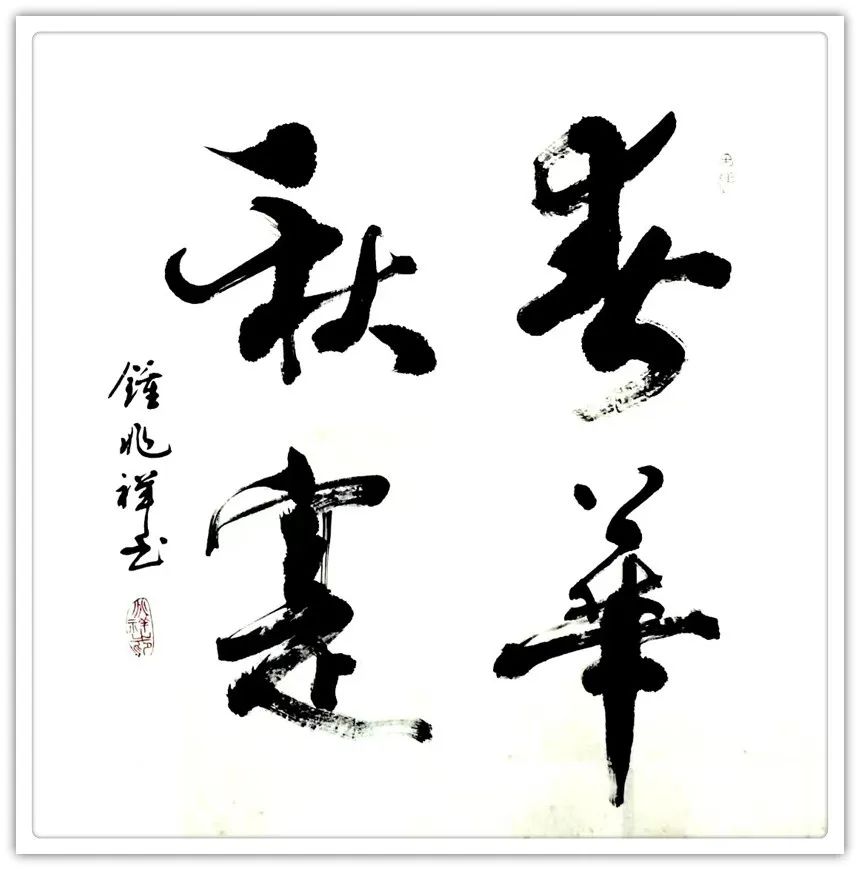 春華
秋實
鍾兆祥书